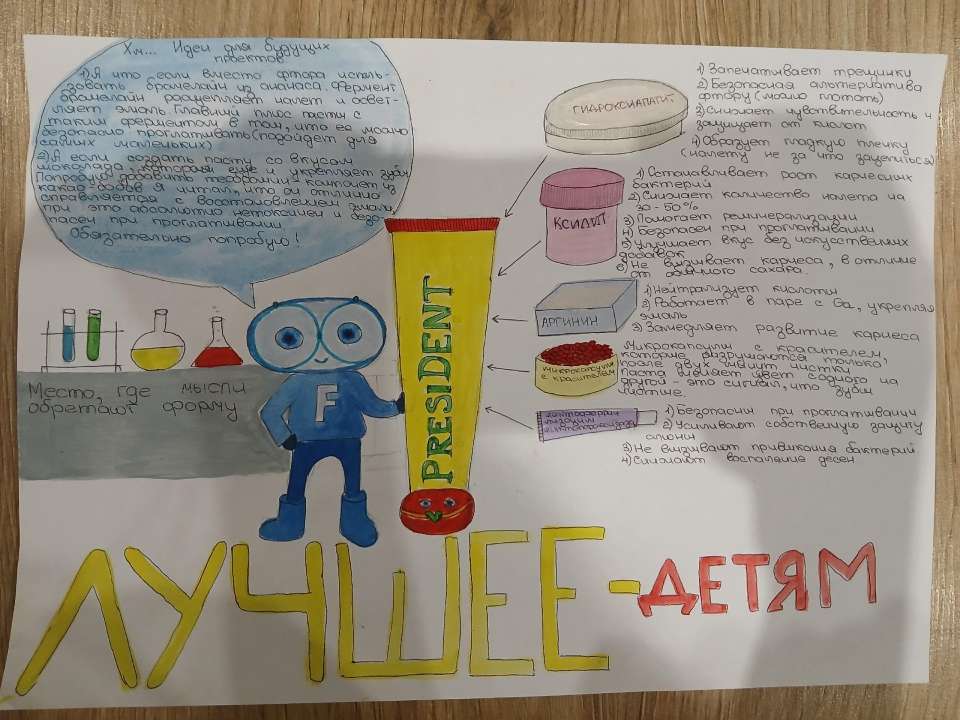 Хм... Идеи для будущих
проектов
1) А что если вместо фтора исполь-
зовать бромелайн из ананаса. Фермент
бромелайн расщепляет налет и освет-
ляет эмаль. Главный плюс пасты с
таким ферментом в том, что ее можно
безопасно проглатывать (подойдет для
самых маленьких)
2) А если создать пасту со вкусом
шоколада, которая еще и укрепляет зубы.
Попробую добавить теобромин - компонент из
какао-бобов. Я читал, что он отлично
справляется с восстановлением эмали,
при это абсолютно нетоксичен и безо-
пасен при проглатывании
Обязательно попробую!
Место, где мысли
обретают форму
F
PRESIDENT
ГИДРОКСИАПАТИТ
1) Запечатывает трещинки
2) Безопасная альтернатива
фтору (можно глотать)
3) Снижает чувствительность и
защищает от кислот
4) Образует гладкую пленку
(налету не за что зацепиться)
КСИЛИТ
1) Останавливает рост кариесных
бактерий
2) Снижает количество налета на
30-50%
3) Помогает реминерализации
4) Безопасен при проглатывании
5) Улучшает вкус без искусственных
добавок
6) Не вызывает кариеса, в отличие
от обычного сахара.
АРГИНИН
1) Нейтрализует кислоты
2) Работает в паре с Ca, укрепляя
эмаль
3) Замедляет развитие кариеса
МИКРОКАПСУЛЫ
С КРАСИТЕЛЕМ
Микрокапсулы с красителем,
которые разрушаются только
после двух минут чистки
Паста меняет цвет с одного на
другой - это сигнал, что зубы
чистые.
лактоферрин
лизоцим
лактопероксидаза
1) Безопасны при проглатывании
2) Усиливают собственную защиту
слюны
3) Не вызывают привыкания бактерий
4) Снижают воспаление десен
ЛУЧШЕЕ-ДЕТЯМ